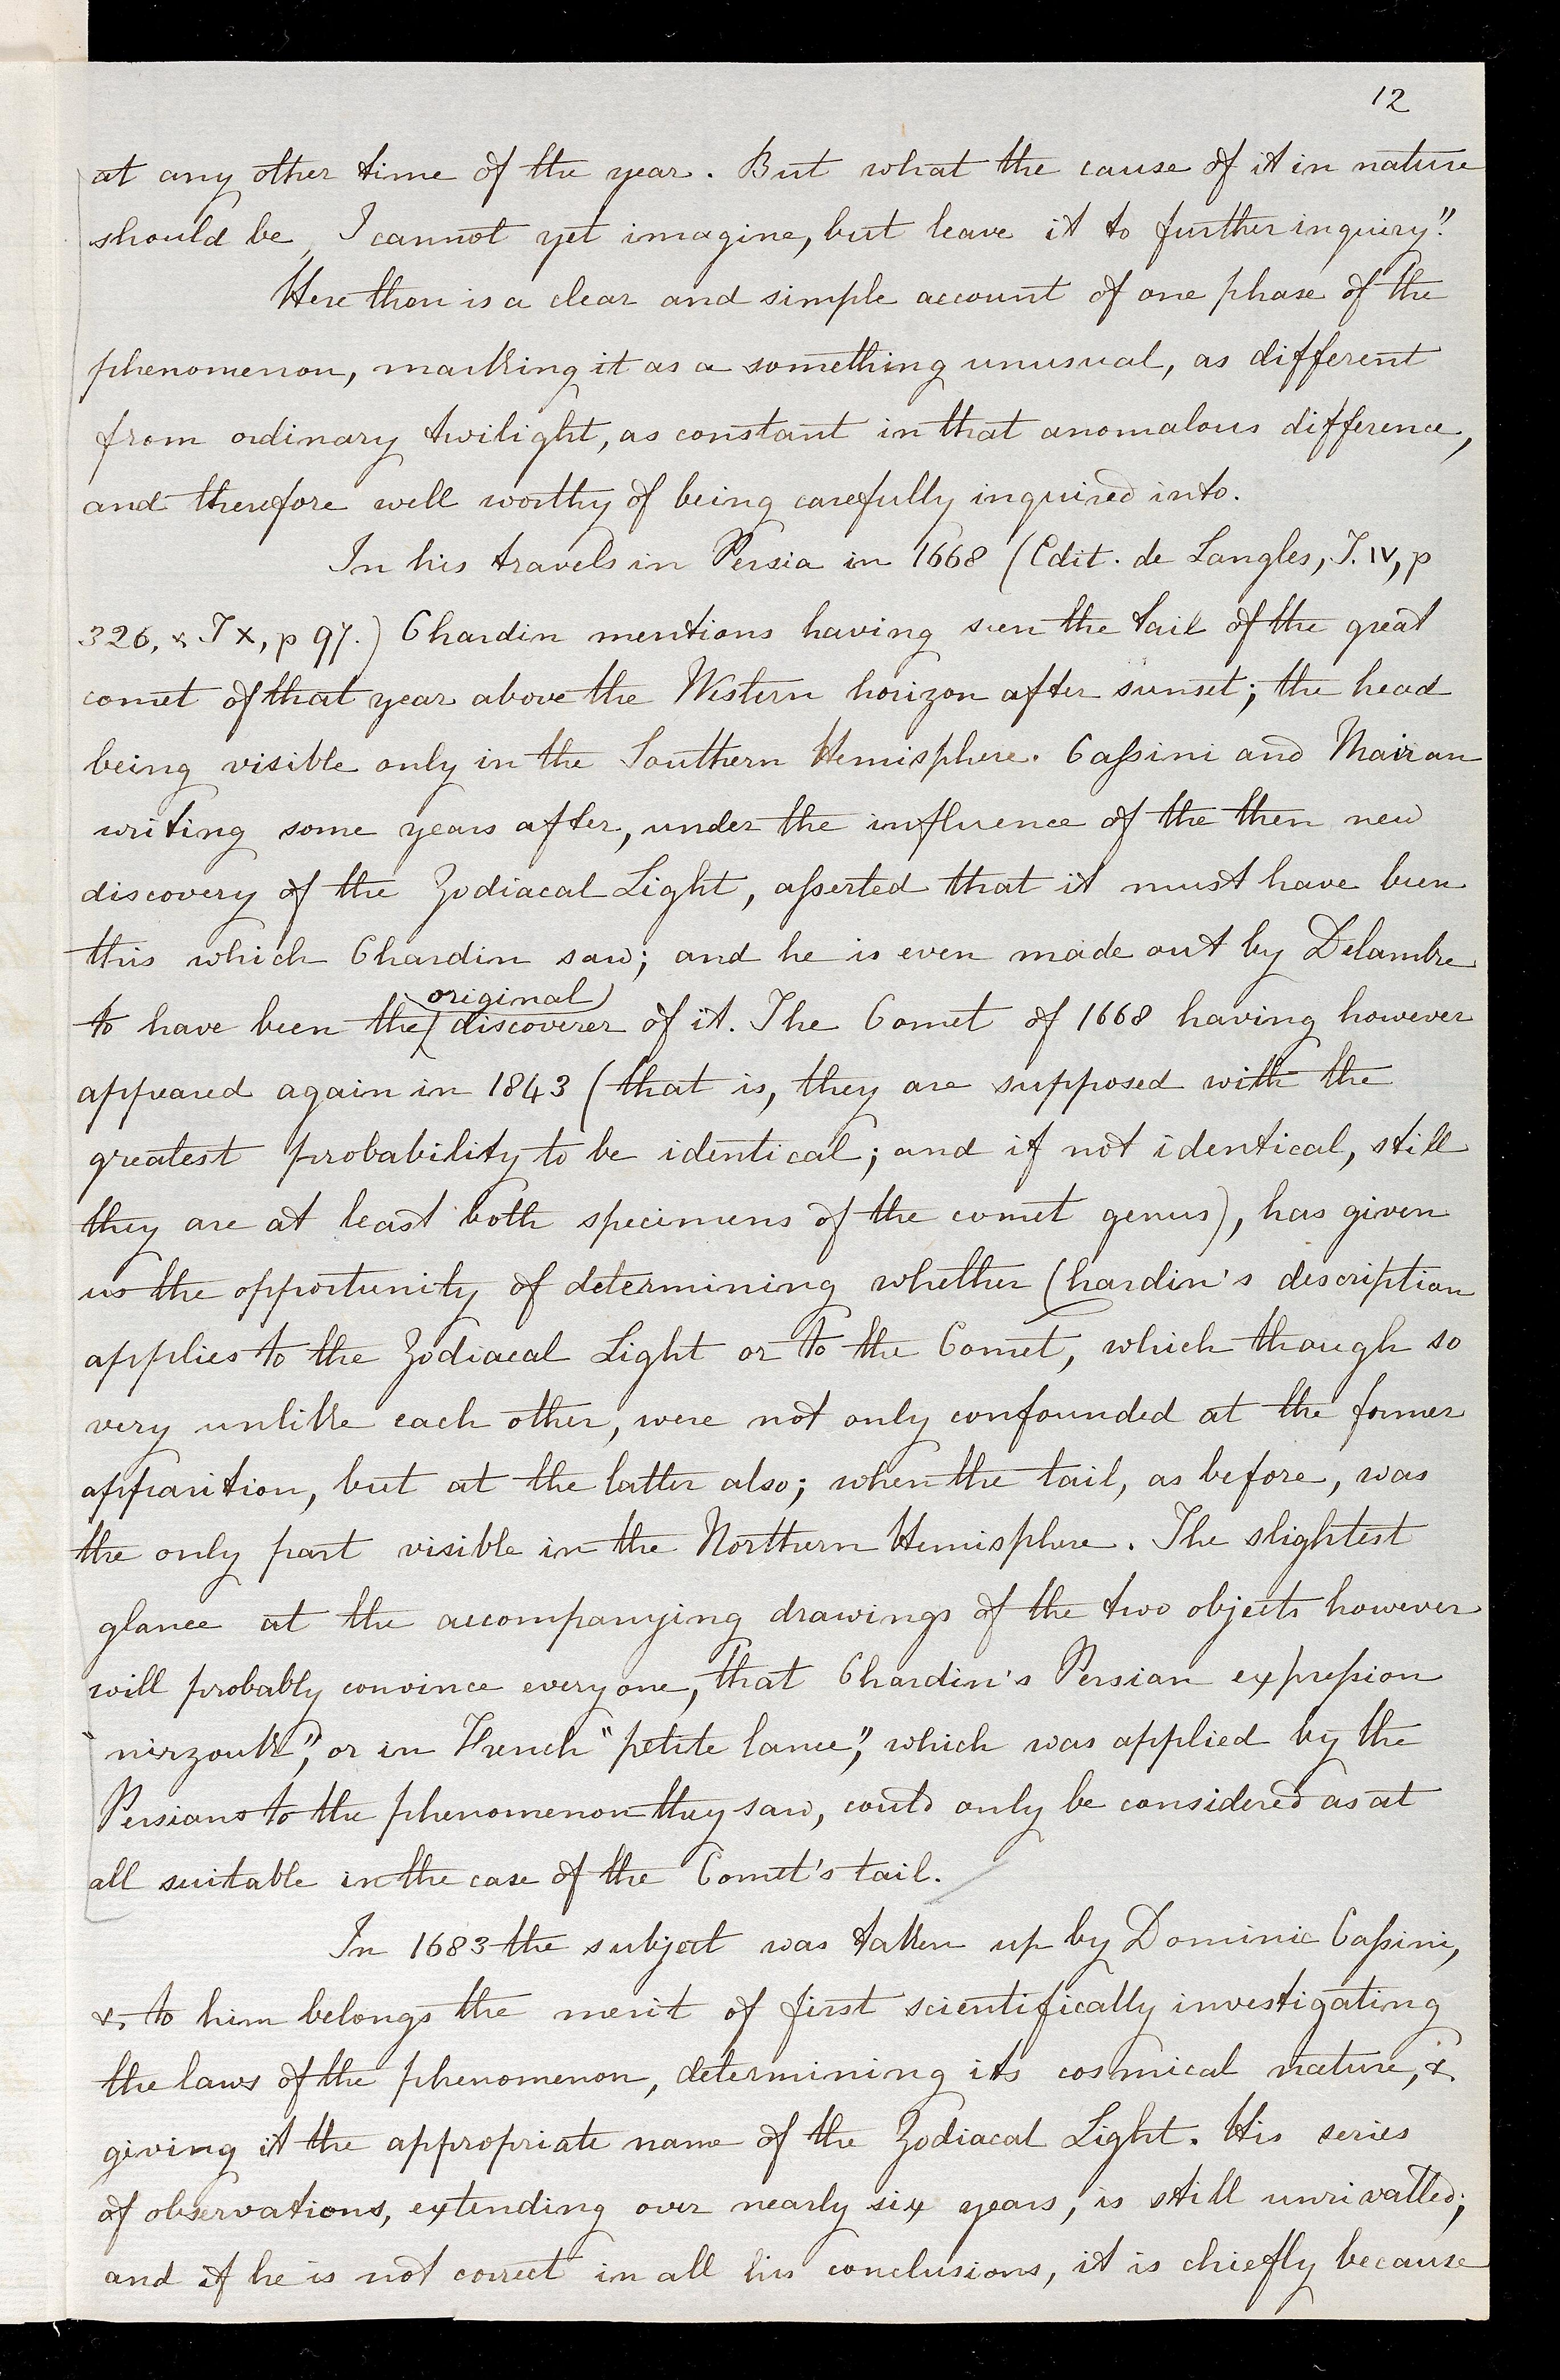 12
at any other time of the year. But what the cause of it in nature
should be, I cannot yet imagine, but leave it to further inquiry."
Here then is a clear and simple account of one phase of the
phenomenon, marking it as a something unusual, as different
from ordinary twilight, as constant in that anomalous difference,
and therefore well worthy of being carefully inquired into.
In his travels in Persia in 1668 (Edit. de Langles, T. IV, p
326, & T X, p 97.) Chardin mentions having seen the tail of the great
comet of that year above the Western horizon after sunset; the head
being visible only in the Southern Hemisphere. Caſsini and Mairan
writing some years after, under the influence of the then new
discovery of the Zodiacal Light, aſserted that it must have been
this which Chardin saw; and he is even made out by Delambre
original
to have been the discoverer of it. The Comet of 1668 having however
appeared again in 1843 (that is, they are supposed with the
greatest probability to be identical; and if not identical, still
they are at least both specimens of the comet genus), has given
us the opportunity of determining whether Chardin's description
applies to the Zodiacal Light or to the Comet, which though so
very unlike each other, were not only confounded at the former
apparition, but at the latter also; when the tail, as before, was
the only part visible in the Northern Hemisphere. The slightest
glance at the accompanying drawings of the two objects however
will probably convince everyone, that Chardin's Persian expreſsion
"nirzouk", or in French "petite lance", which was applied by the
Persians to the phenomenon they saw, could only be considered as at
all suitable in the case of the Comet's tail.
In 1683 the subject was taken up by Dominic Caſsini,
& to him belongs the merit of first scientifically investigating
the laws of the phenomenon, determining its cosmical nature, &
giving it the appropriate name of the Zodiacal Light. His series
of observations, extending over nearly six years, is still unrivalled;
and if he is not correct in all his conclusions, it is chiefly because